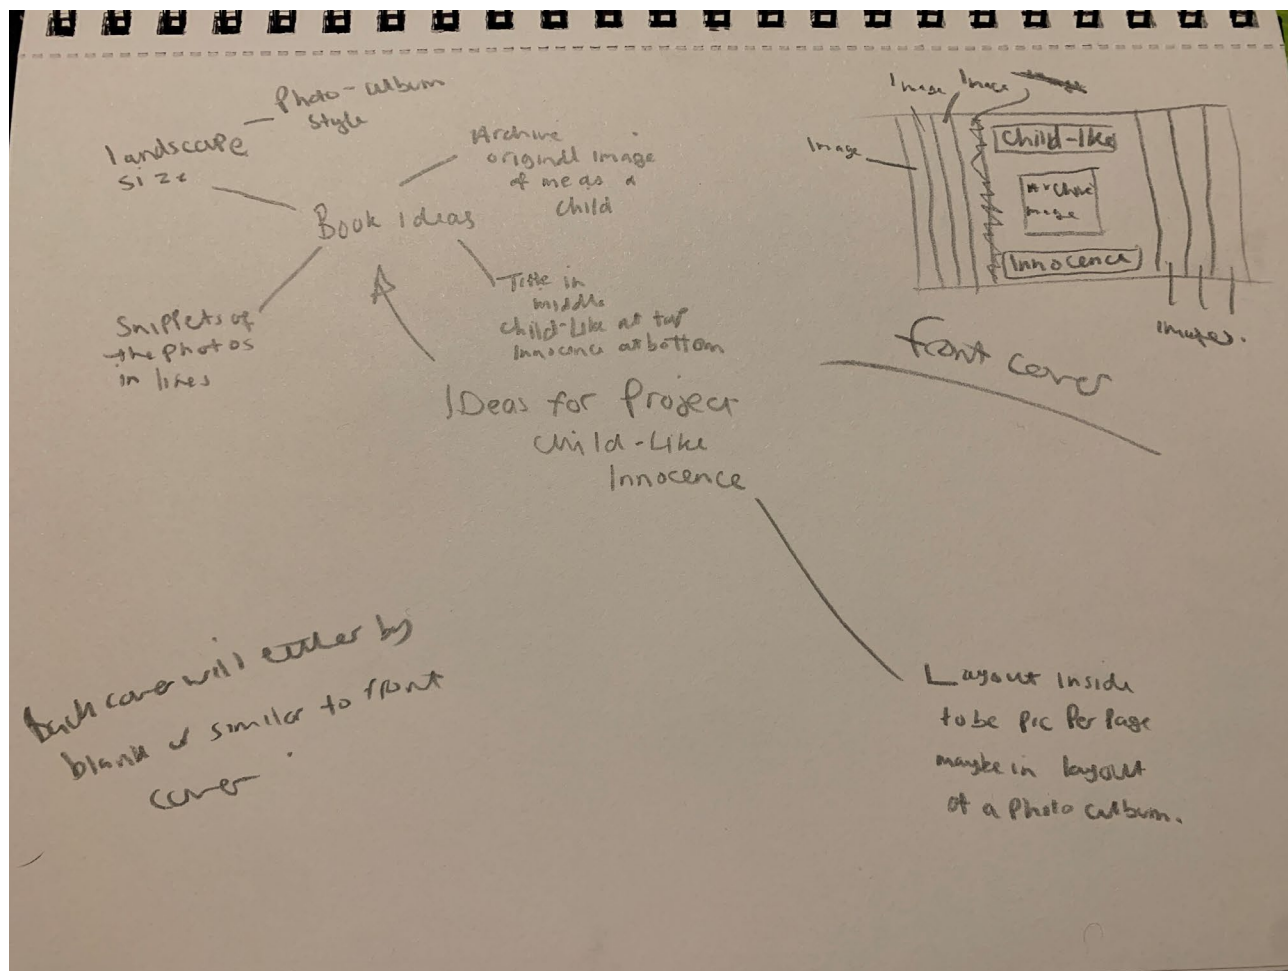 Photo-album
style
landscape
size
Archive
original image
of me as a
child
Book Ideas
Snippets of
the photos
in lines
Title in
middle
child-like at top
innocence at bottom
IDeas for Project
child-Like
Innocence
Image
Image
Image
Child-like
Archive
image
Innocence
images.
front cover
Back cover will either by
blank or similar to front
cover.
Layout inside
to be pic per page
maybe in layout
of a photo album.